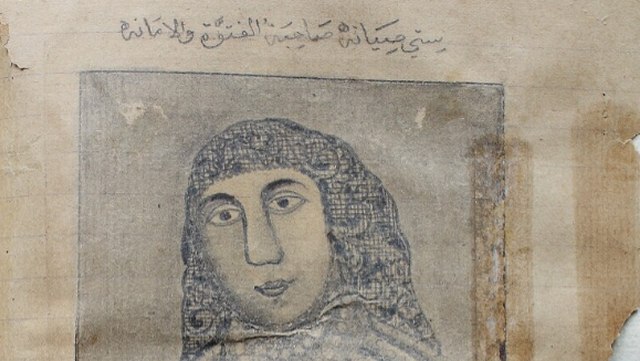 سِتي صِيَانه صَاحِبَةُ الفتوَّة والامَانه